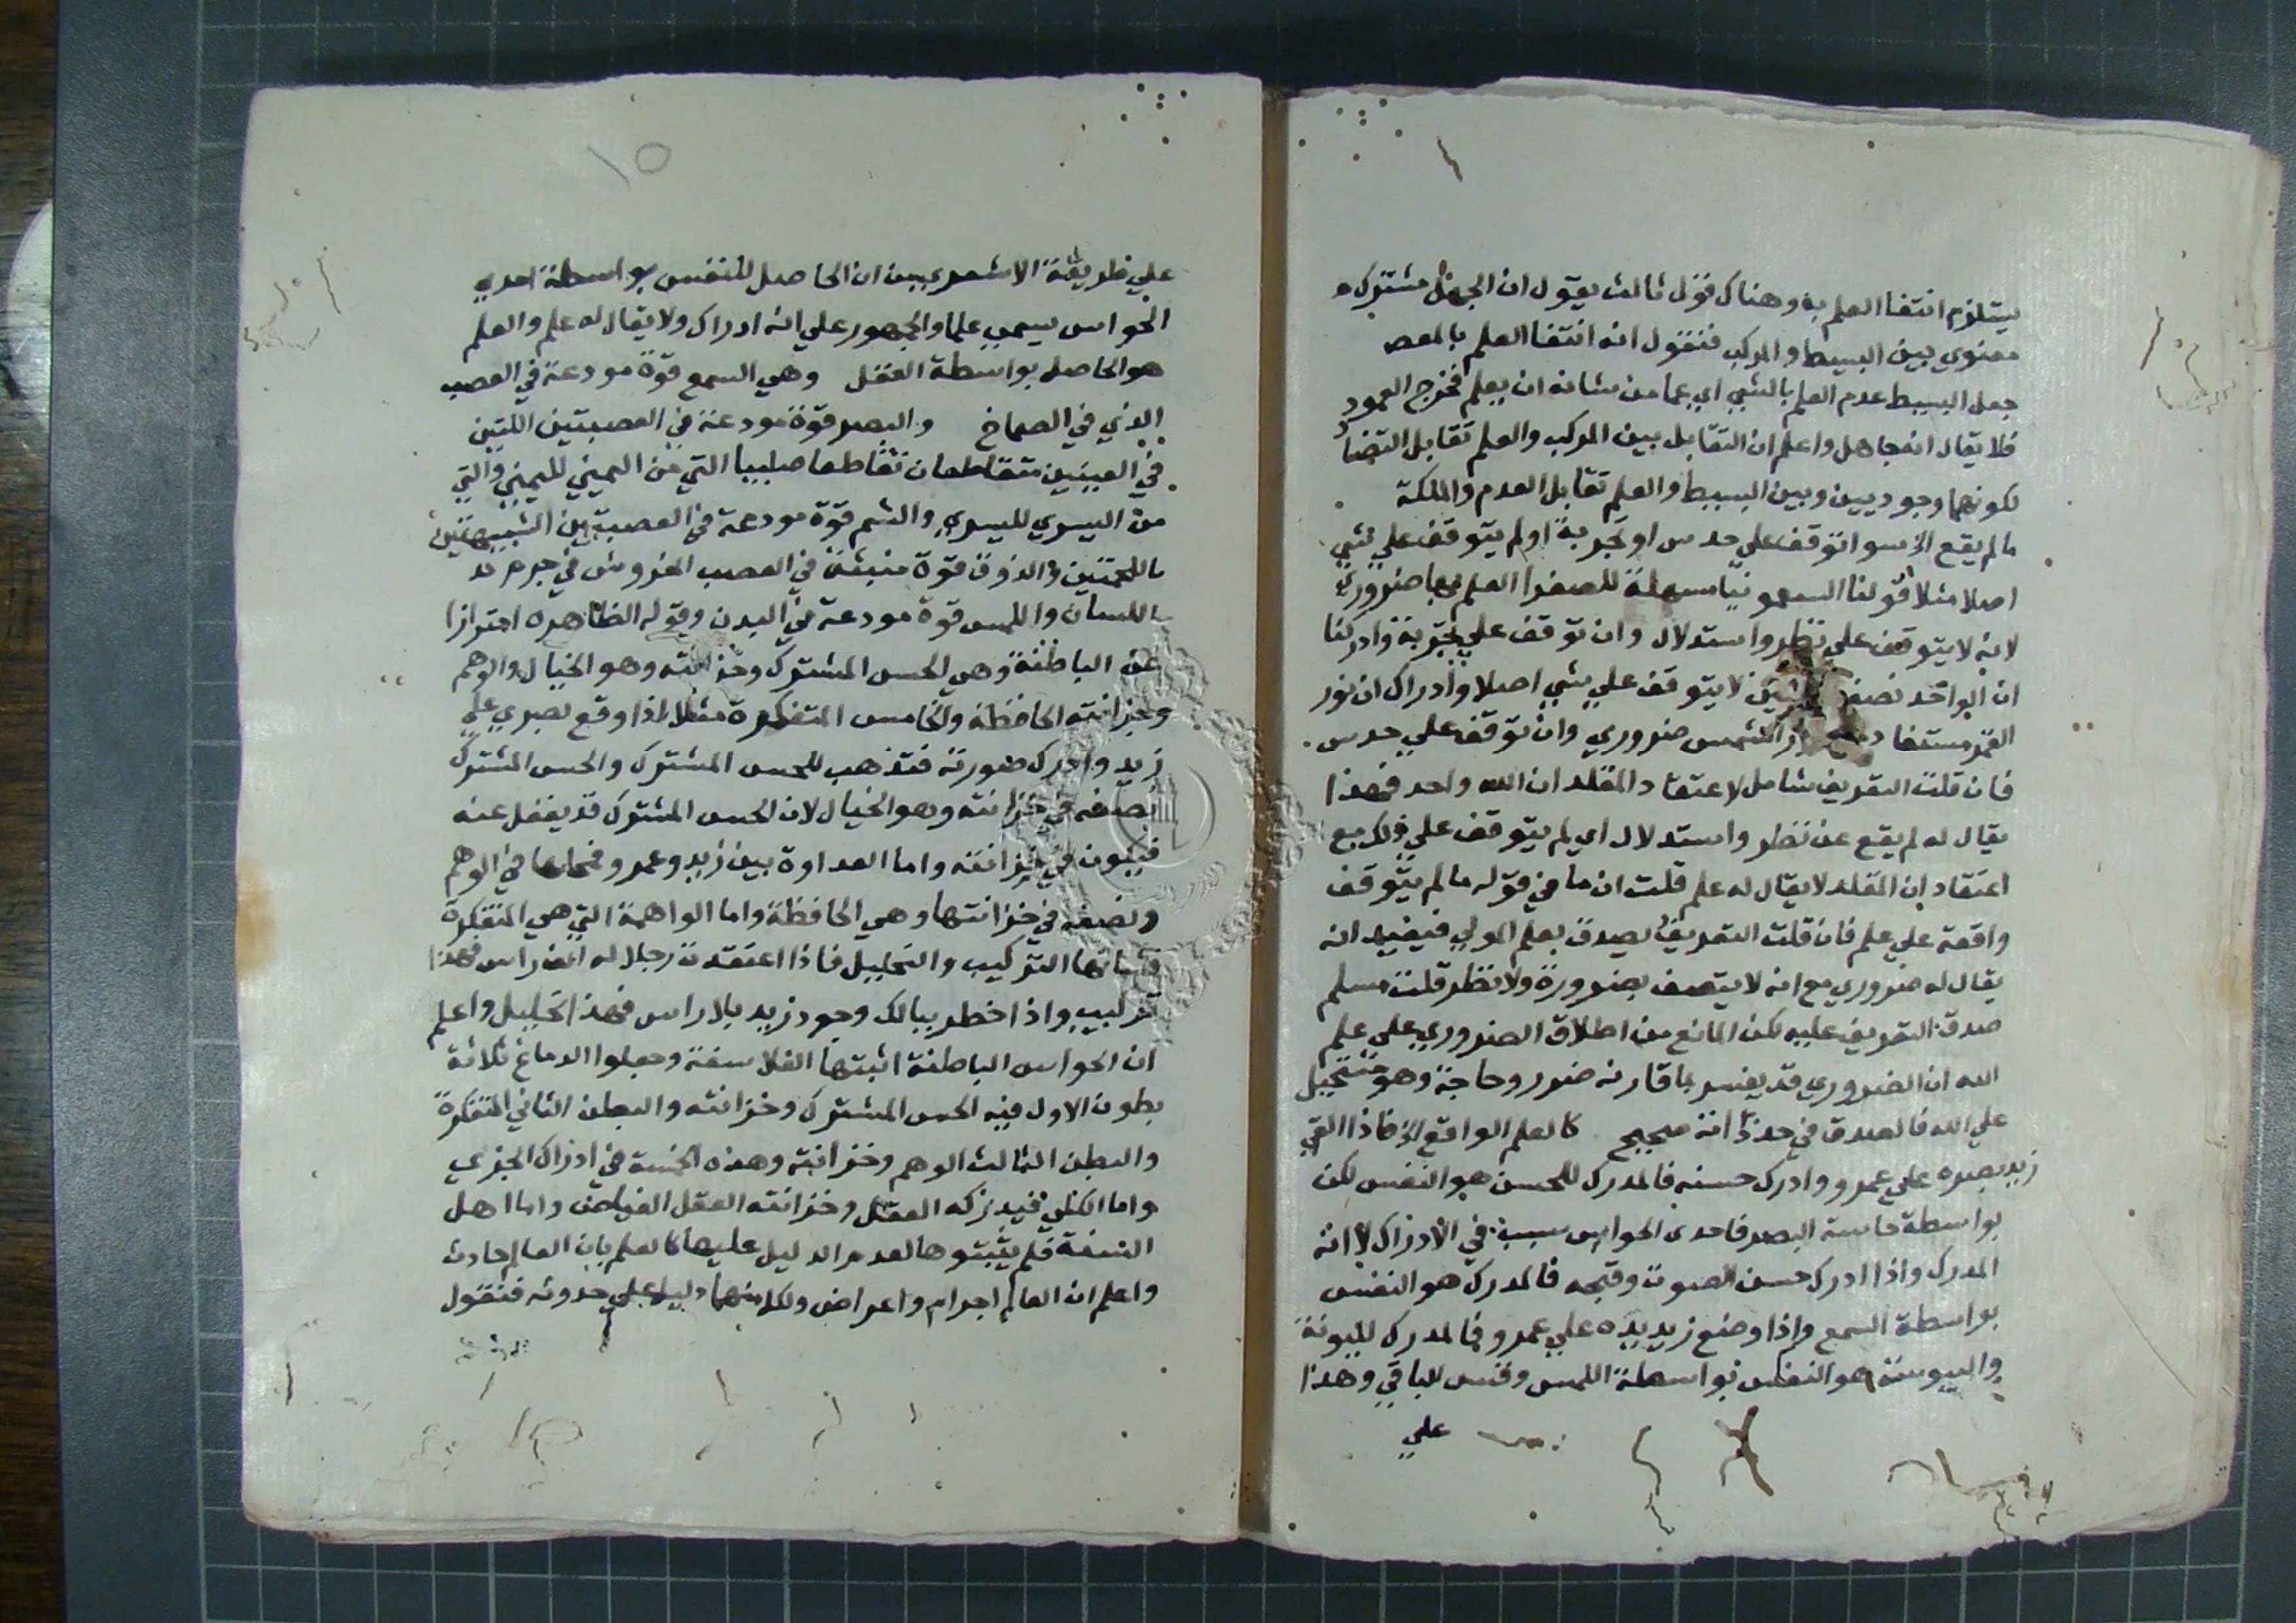 يستلزم انتفا العلم به وهناك قول ثالث يقول ان الجهل مشترك
معنوي بين البسيط والمركب فنقول انه انتفا العلم بالمقصـ
جعل البسيط عدم العلم بالشي اي عما من شانه ان يعلم فخرج العمود
فلا يقال انه جاهل واعلم ان التقابل بين المركب والعلم تقابل التضا
لكونهما وجوديين وبين البسيط والعلم تقابل العدم والملكة
ما لم يقع الخ سوا توقف علي حدس او تجربة او لم يتوقف علي شي
اصلا مثلا قولنا السقمونيا مسهلة للصفرا العلم بها ضروري
لانه لا يتوقف علي نظر واستدلال وان توقف علي تجربة وادركنا
ان الواحد نصف الاثنين لا يتوقف علي شي اصلا وادراك ان نور
القمر مستفاد الشمس ضروري وان توقف علي حدس
فان قلت التعريف شامل لاعتقاد المقلد ان الله واحد فهذا
يقال له لم يقع عن نظر واستدلال اي لم يتوقف علي ذلك مع
اعتقاد ان المقلد لا يقال له علم قلت ان ما في قوله ما لم يتوقف
واقعة علي علم فان قلت التعريف يصدق بعلم المولي فيفيد انه
يقال له ضروري مع انه لا يتصف بضرورة ولا نظر قلت مسلم
صدق التعريف عليه لكن المانع من اطلاق الضروري علي علم
الله ان الضروري قد يفسر بما قارنه ضرر وحاجة وهو مستحيل
علي الله فالصدق في حد ذاته صحيح كالعلم الواقع الخ فاذا القي
زيد بصره علي عمرو وادرك حسنه فالمدرك للحسن هو النفس لكن
بواسطة حاسة البصر فاحدى الحواس سبب في الادراك لا انه
المدرك واذا ادرك حسن الصوت وقبحه فالمدرك هو النفس
بواسطة السمع واذا وضع زيد يده علي عمرو فالمدرك لليونة
واليبوسة هو النفس بواسطة اللمس وقس الباقي وهذا
علي
١٥
علي طريقة الاشعري بين ان الحاصل للنفس بواسطة احدي
الحواس يسمي علما والجمهور علي انه ادراك ولا يقال له علم والعلم
هو الحاصل بواسطة العقل وهي السمع قوة مودعة في العصب
الذي في الصماخ والبصر قوة مودعة في العصبتين اللتين
في العينين متقاطعان تقاطعا صليبيا التي من اليميني لليميني والتي
من اليسري لليسري والشم قوة مودعة في العصبتين الشبيهتين
باللحمتين والذوق قوة منبثة في العصب المفروش في جرم
اللسان واللمس قوة مودعة في البدن وقوله الظاهره احترازا
عن الباطنة وهي الحس المشترك وخزانته وهو الخيال والوهم
وخزانته الحافظة والخامس المتفكرة مثلا اذا وقع بصري علي
زيد وادرك صورته فتذهب للحس المشترك والحس المشترك
يضعه في خزانته وهو الخيال لان الحس المشترك قد يغفل عنه
فيكون في خزانته واما العداوة بين زيد وعمرو فمحلها في الوهم
وتضعه في خزانتها وهي الحافظة واما الواهمة التي هي المتفكرة
وشانها التركيب والتحليل فاذا اعتقدت رجلا له الف راس فهذا
تركيب واذا خطر ببالك وجود زيد بلا راس فهذا تحليل واعلم
ان الحواس الباطنة اثبتها الفلاسفة وجعلوا الدماغ ثلاثة
بطون الاول فيه الحس المشترك وخزانته والبطن الثاني المتفكرة
والبطن الثالث الوهم وخزانته وهذه الخمسة في ادراك الجزي
واما الكلي فيدركه العقل وخزانته العقل الفياض واما اهل
السنة فلم يثبتوها لعدم الدليل عليها كالعلم بان العالم حادث
واعلم ان العالم اجرام واعراض ولكل منهما دليل علي حدوثه فنقول